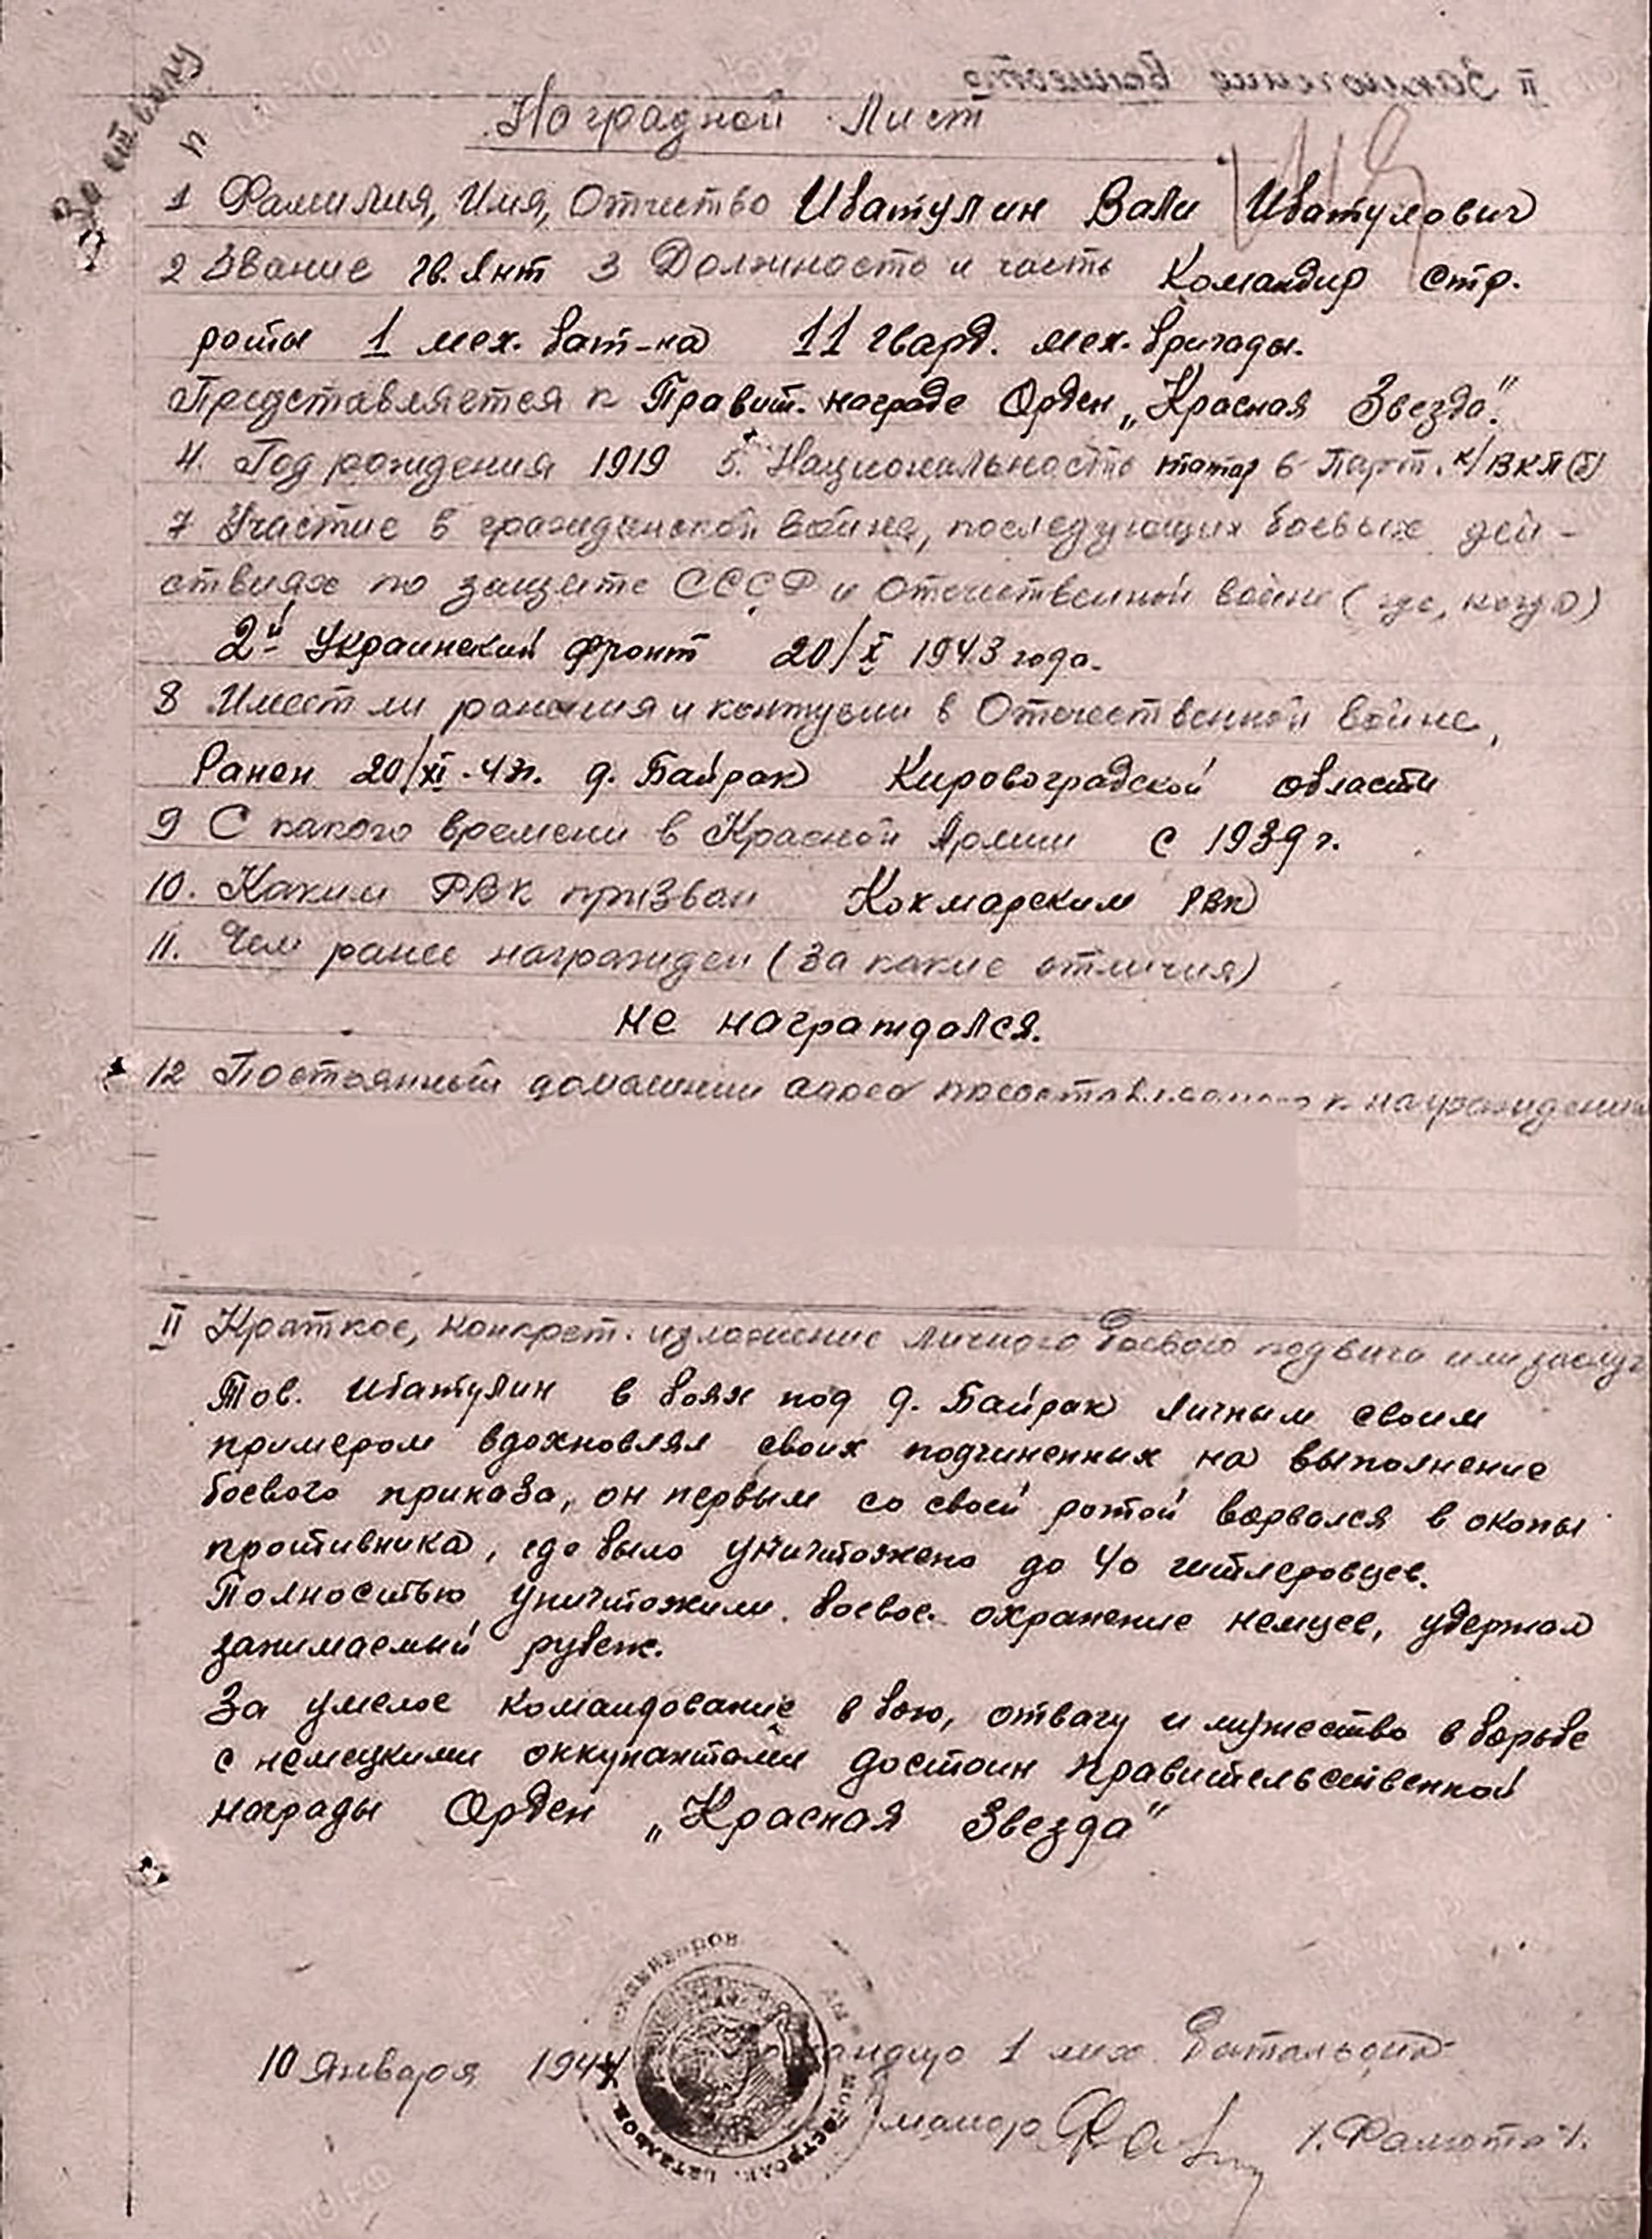 Наградной Лист
1 Фамилия, Имя, Отчество Ибатулин Вали Ибатулович
2 Звание гв. л-нт 3 Должность и часть Командир стр.
роты 1 мех. бат-на 11 гвард. мех. бригады.
Представляется к Правит. награде Орден „Красная Звезда".
4. Год рождения 1919 5. Национальность татар 6 Парт. к/ВКП(б)
7 Участие в гражданской войне, последующих боевых дей-
ствиях по защите СССР и Отечественной войне (где, когда)
2й Украинский фронт 20/X 1943 года.
8 Имеет ли ранения и контузии в Отечественной войне,
Ранен 20/XI-43г. д. Байрак Кировоградской области
9 С какого времени в Красной Армии с 1939 г.
10. Каким РВК призван Кокмарским РВК
11. Чем ранее награжден (за какие отличия)
не награждался.
12 Постоянный домашний адрес представляемого к награждению
II Краткое, конкрет. изложение личного боевого подвига или заслуг
Тов. Ибатулин в боях под д. Байрак личным своим
примером вдохновлял своих подчиненных на выполнение
боевого приказа, он первым со своей ротой ворвался в окопы
противника, где было уничтожено до 40 гитлеровцев.
Полностью уничтожили боевое охранение немцев, удержал
занимаемый рубеж.
За умелое командование в бою, отвагу и мужество в борьбе
с немецкими оккупантами достоин правительственной
награды Орден „Красная Звезда"
10 Января 1944 Командир 1 мех. Батальона
майор /Фалюта/.